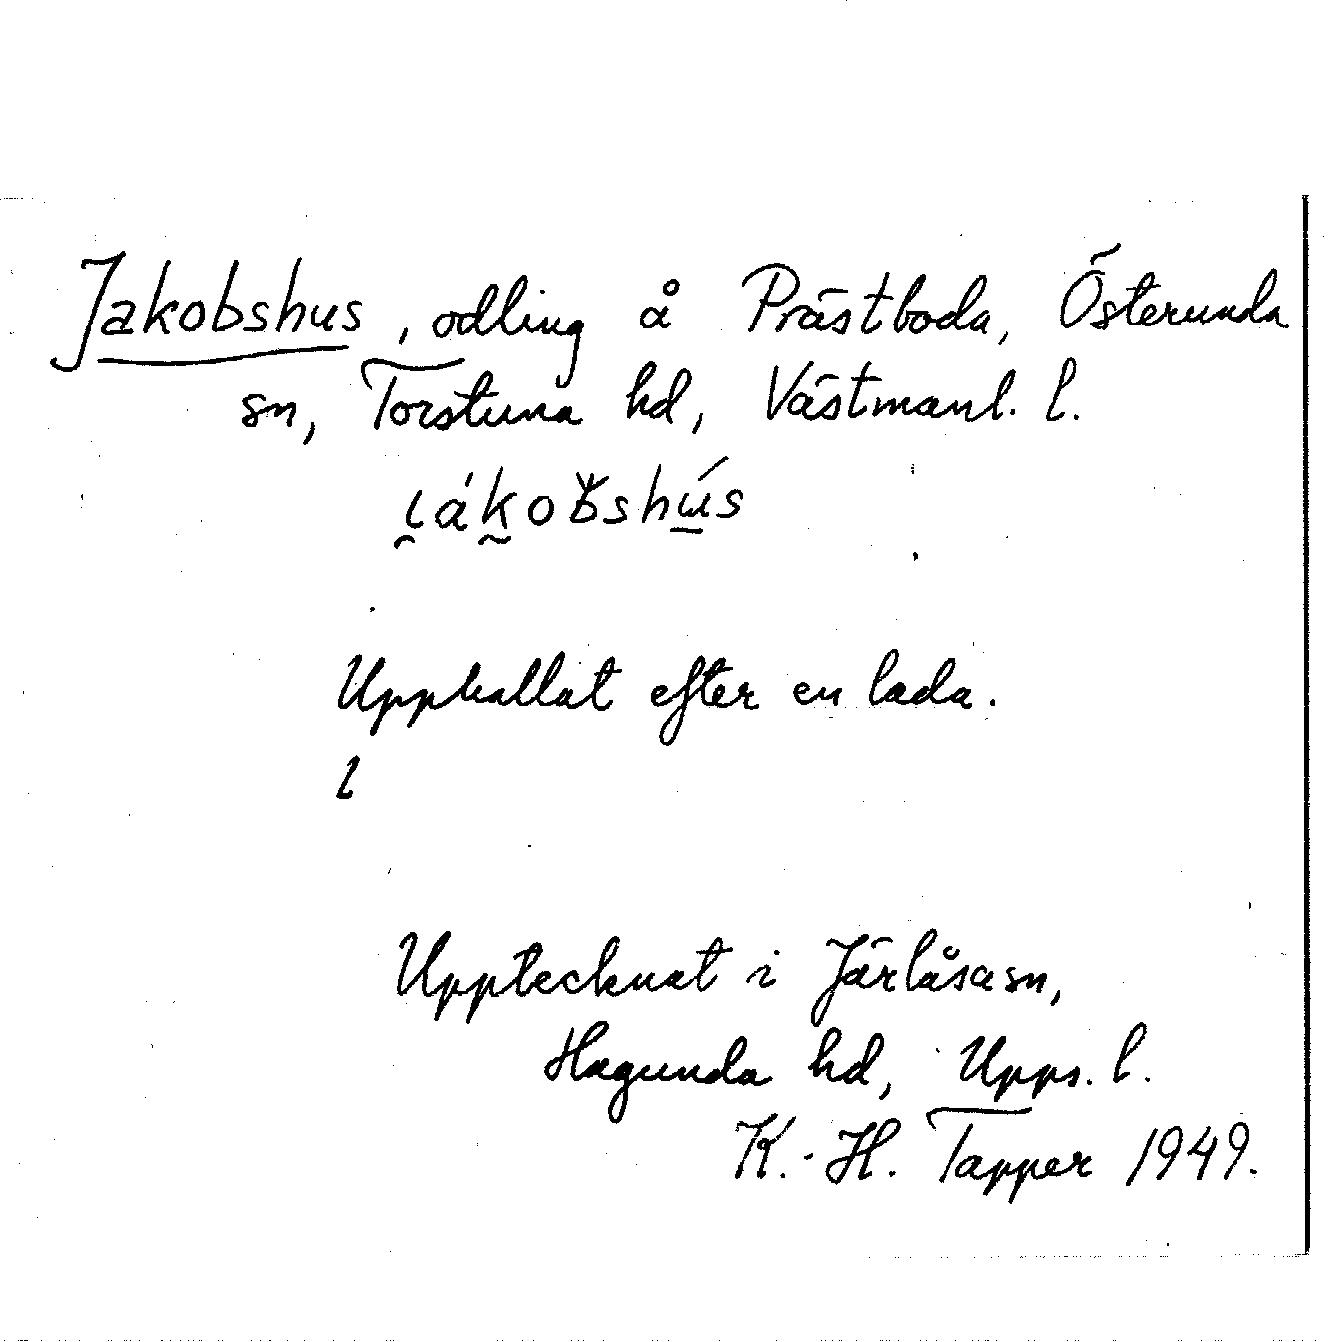 Jakobshus, odling å Prästboda, Österunda
sn, Torstuna hd, Västmanl. l.
Uppkallat efter en lada.
l
Upptecknat i Järlåsa sn,
Hagunda hd, Upps. l.
K.-H. Tapper 1949.